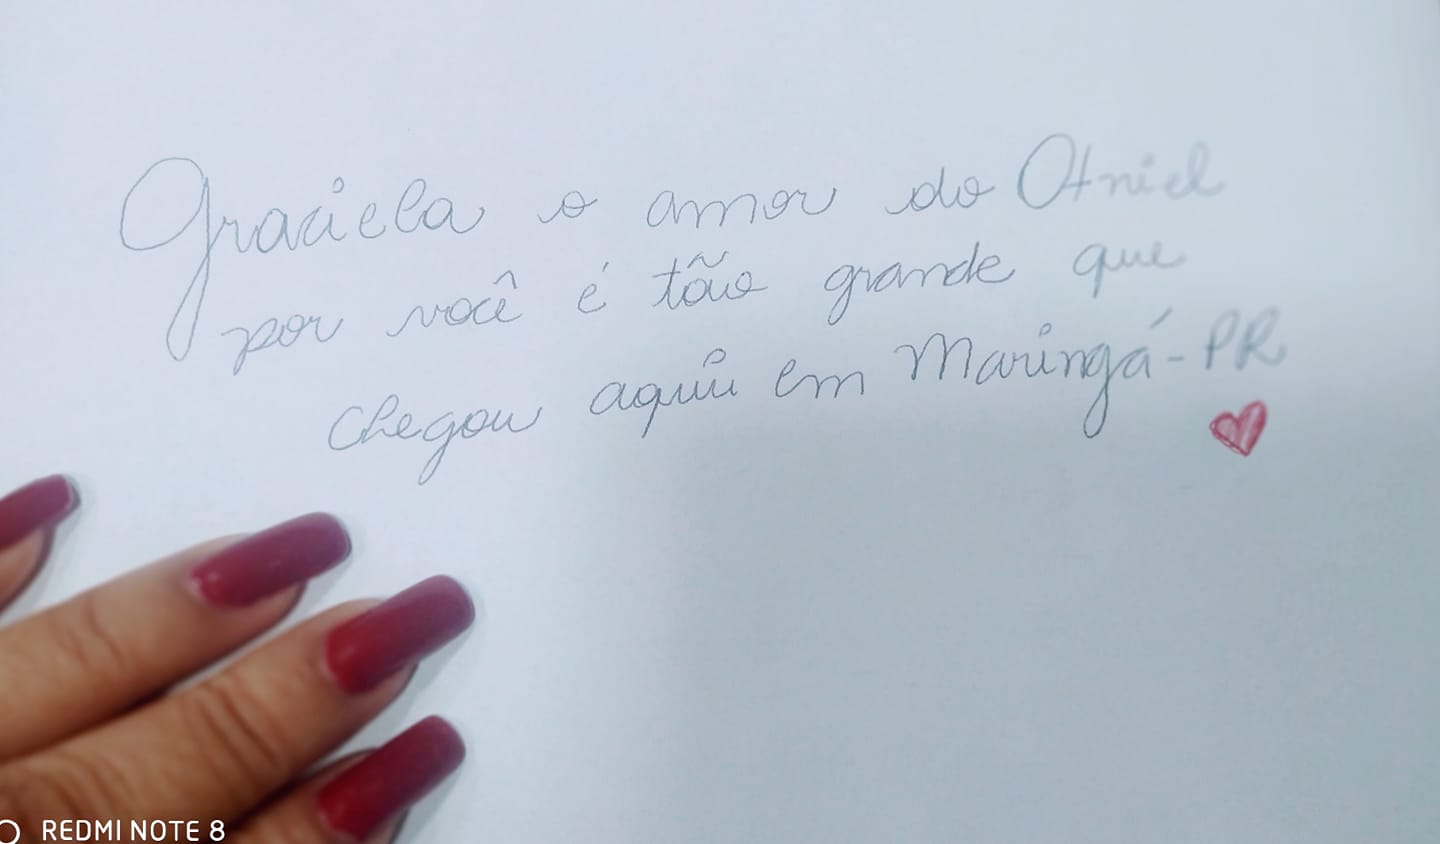 Graciela o amor do Otniel
por você é tão grande que
chegou aqui em Maringá-PR
REDMI NOTE 8